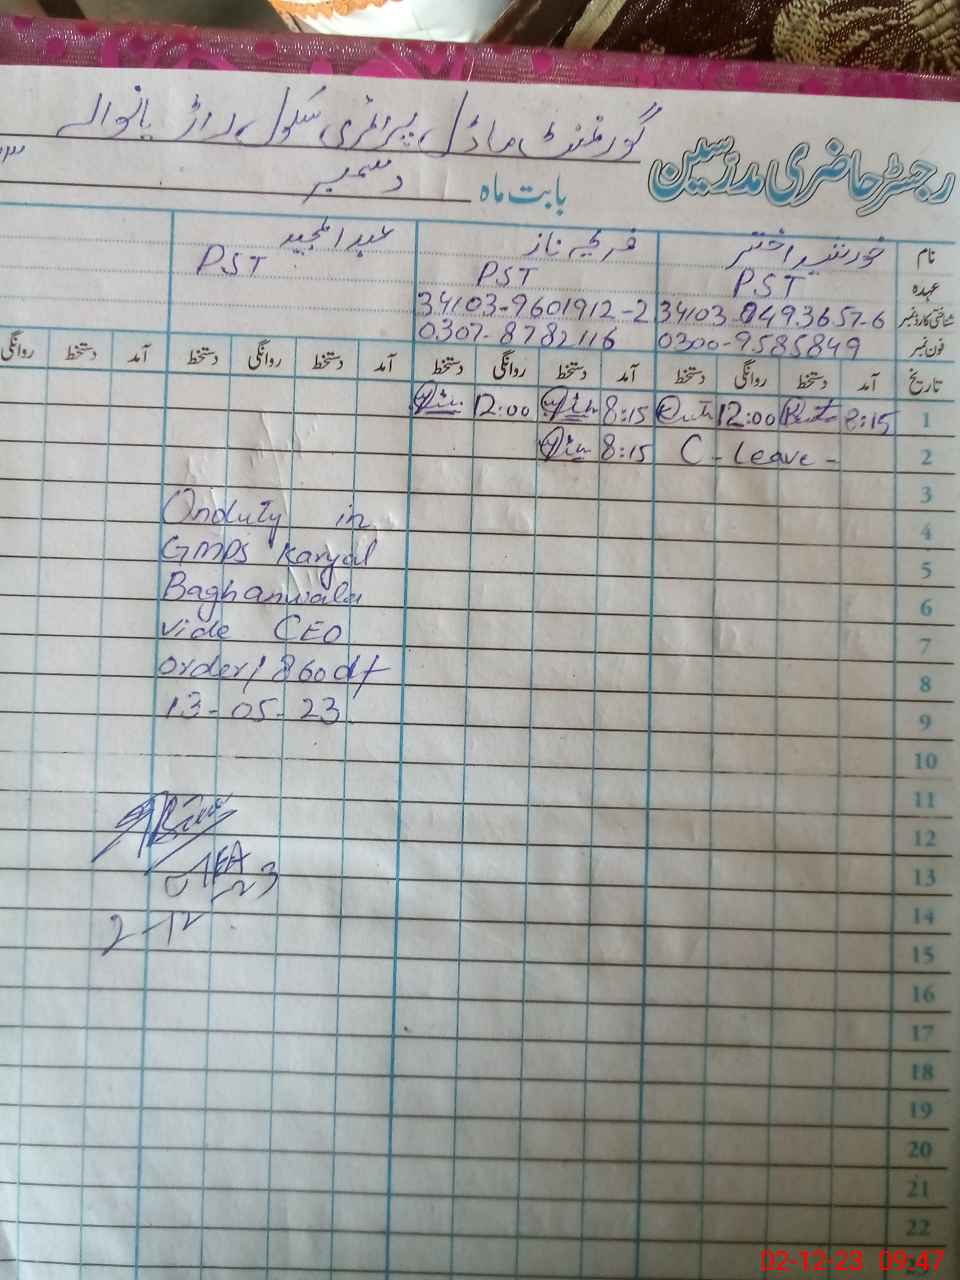 گورنمنٹ ماڈل پرائمری سکول
رجسٹر حاضری مدرسین
بابت ماہ دسمبر
نام خورشید اختر فرحیہ ناز عبدالمجید
عہدہ PST PST PST
شناختی کارڈ نمبر 34103-0493657-6 34103-9601912-2
فون نمبر 0300-9585849 0307-8782116
تاریخ آمد دستخط روانگی دستخط آمد دستخط روانگی دستخط آمد دستخط روانگی دستخط آمد دستخط روانگی
1 8:15 12:00 8:15 12:00
2 C-Leave- 8:15
3
4 Onduty in
5 GMPS Karyal
6 Baghanwala
7 vide CEO
8 order 1860 dt
9 13-05-23
10
11
12
13 AEA
14 2-12-23
15
16
17
18
19
20
21
22
02-12-23 09:47